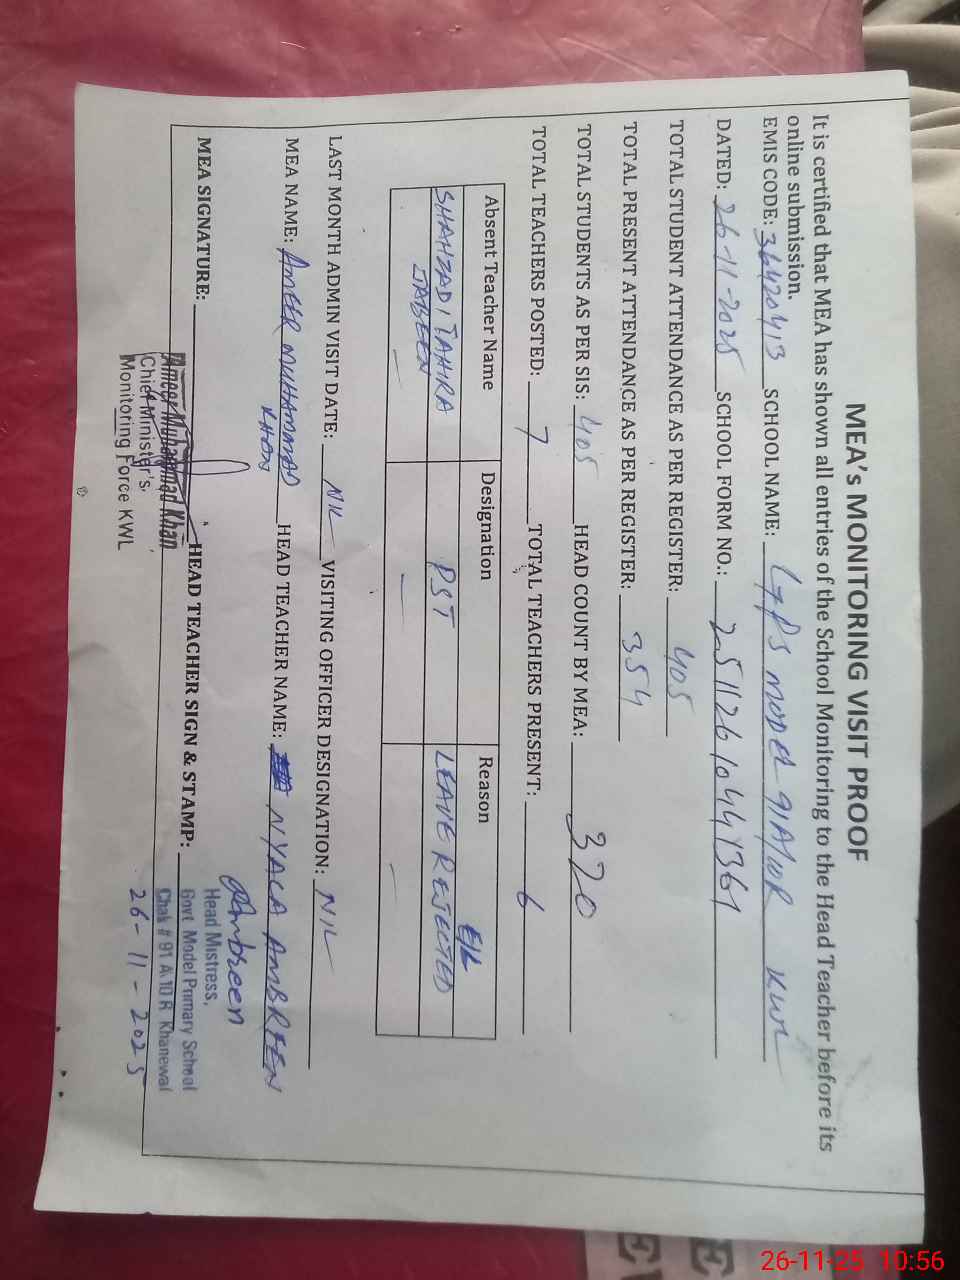 MEA'S MONITORING VISIT PROOF
It is certified that MEA has shown all entries of the School Monitoring to the Head Teacher before its
online submission.
EMIS CODE: 36420413 SCHOOL NAME: GPS MODEL 91A/10R KWL
DATED: 26-11-2025 SCHOOL FORM NO.: 
TOTAL STUDENT ATTENDANCE AS PER REGISTER: 405
TOTAL PRESENT ATTENDANCE AS PER REGISTER: 354
TOTAL STUDENTS AS PER SIS: 405 HEAD COUNT BY MEA: 320
TOTAL TEACHERS POSTED: 7 TOTAL TEACHERS PRESENT: 6
Absent Teacher Name Designation Reason
SHAHZADI TAHIRA JABEEN PST E/L LEAVE REJECTED
LAST MONTH ADMIN VISIT DATE: NIL VISITING OFFICER DESIGNATION: NIL
MEA NAME: AMEER MUHAMMAD KHAN HEAD TEACHER NAME: AMBREEN
MEA SIGNATURE: HEAD TEACHER SIGN & STAMP:
Ameer Muhammad Khan
Chief Minister's
Monitoring Force KWL
Ambreen
Head Mistress,
Govt. Model Primary School
Chak # 91 A.10 R Khanewal
26-11-2025
26-11-25 10:56